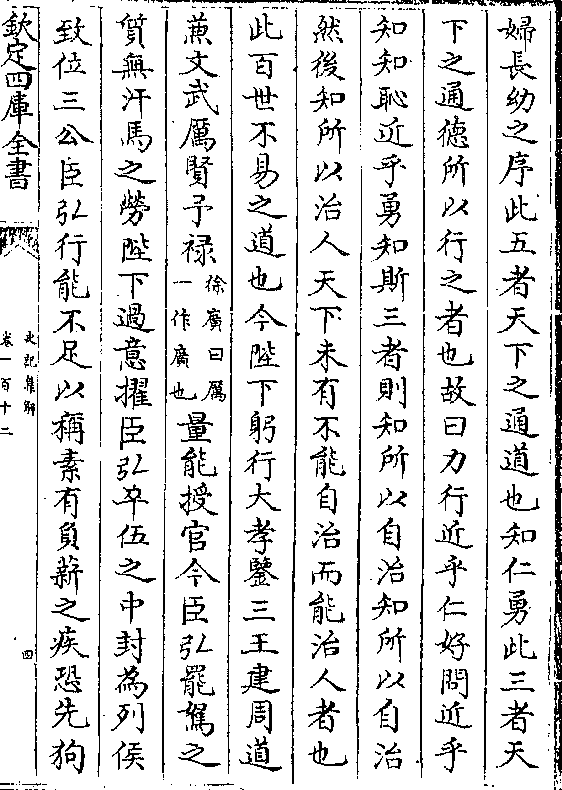 婦長幼之序此五者天下之通道也知仁勇此三者天
下之通德所以行之者也故曰力行近乎仁好問近乎
知知恥近乎勇知斯三者則知所以自治知所以自治
然後知所以治人天下未有不能自治而能治人者也
此百世不易之道也今陛下躬行大孝鑒三王建周道
兼文武厲賢予禄徐廣曰厲一作廣也量能授官今臣弘罷駑之
質無汗馬之勞陛下過意擢臣弘卒伍之中封為列侯
致位三公臣弘行能不足以稱素有負薪之疾恐先狗
欽定四庫全書
史記集解
卷一百十二
四